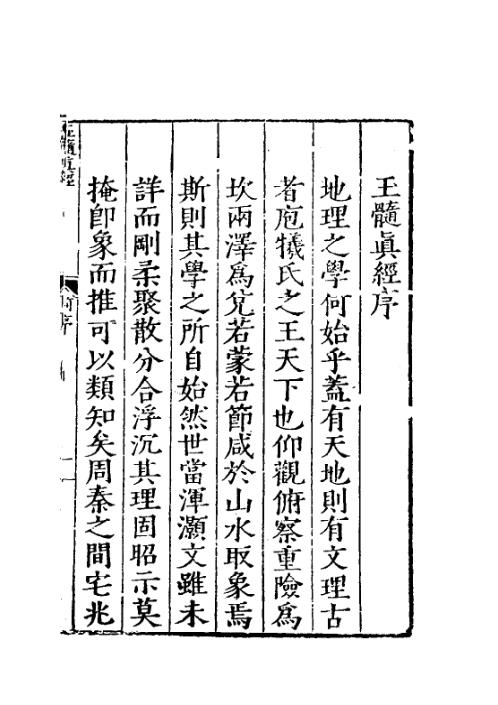 玉髓眞經序
地理之學何始乎蓋有天地則有文理古
者庖犧氏之王天下也仰觀俯察重險爲
坎兩澤爲兊若蒙若節咸於山水取象焉
斯則其學之所自始然世當渾灝文雖未
詳而剛柔聚散分合浮沉其理固昭示莫
掩卽象而推可以類知矣周秦之間宅兆
玉髓眞經
序